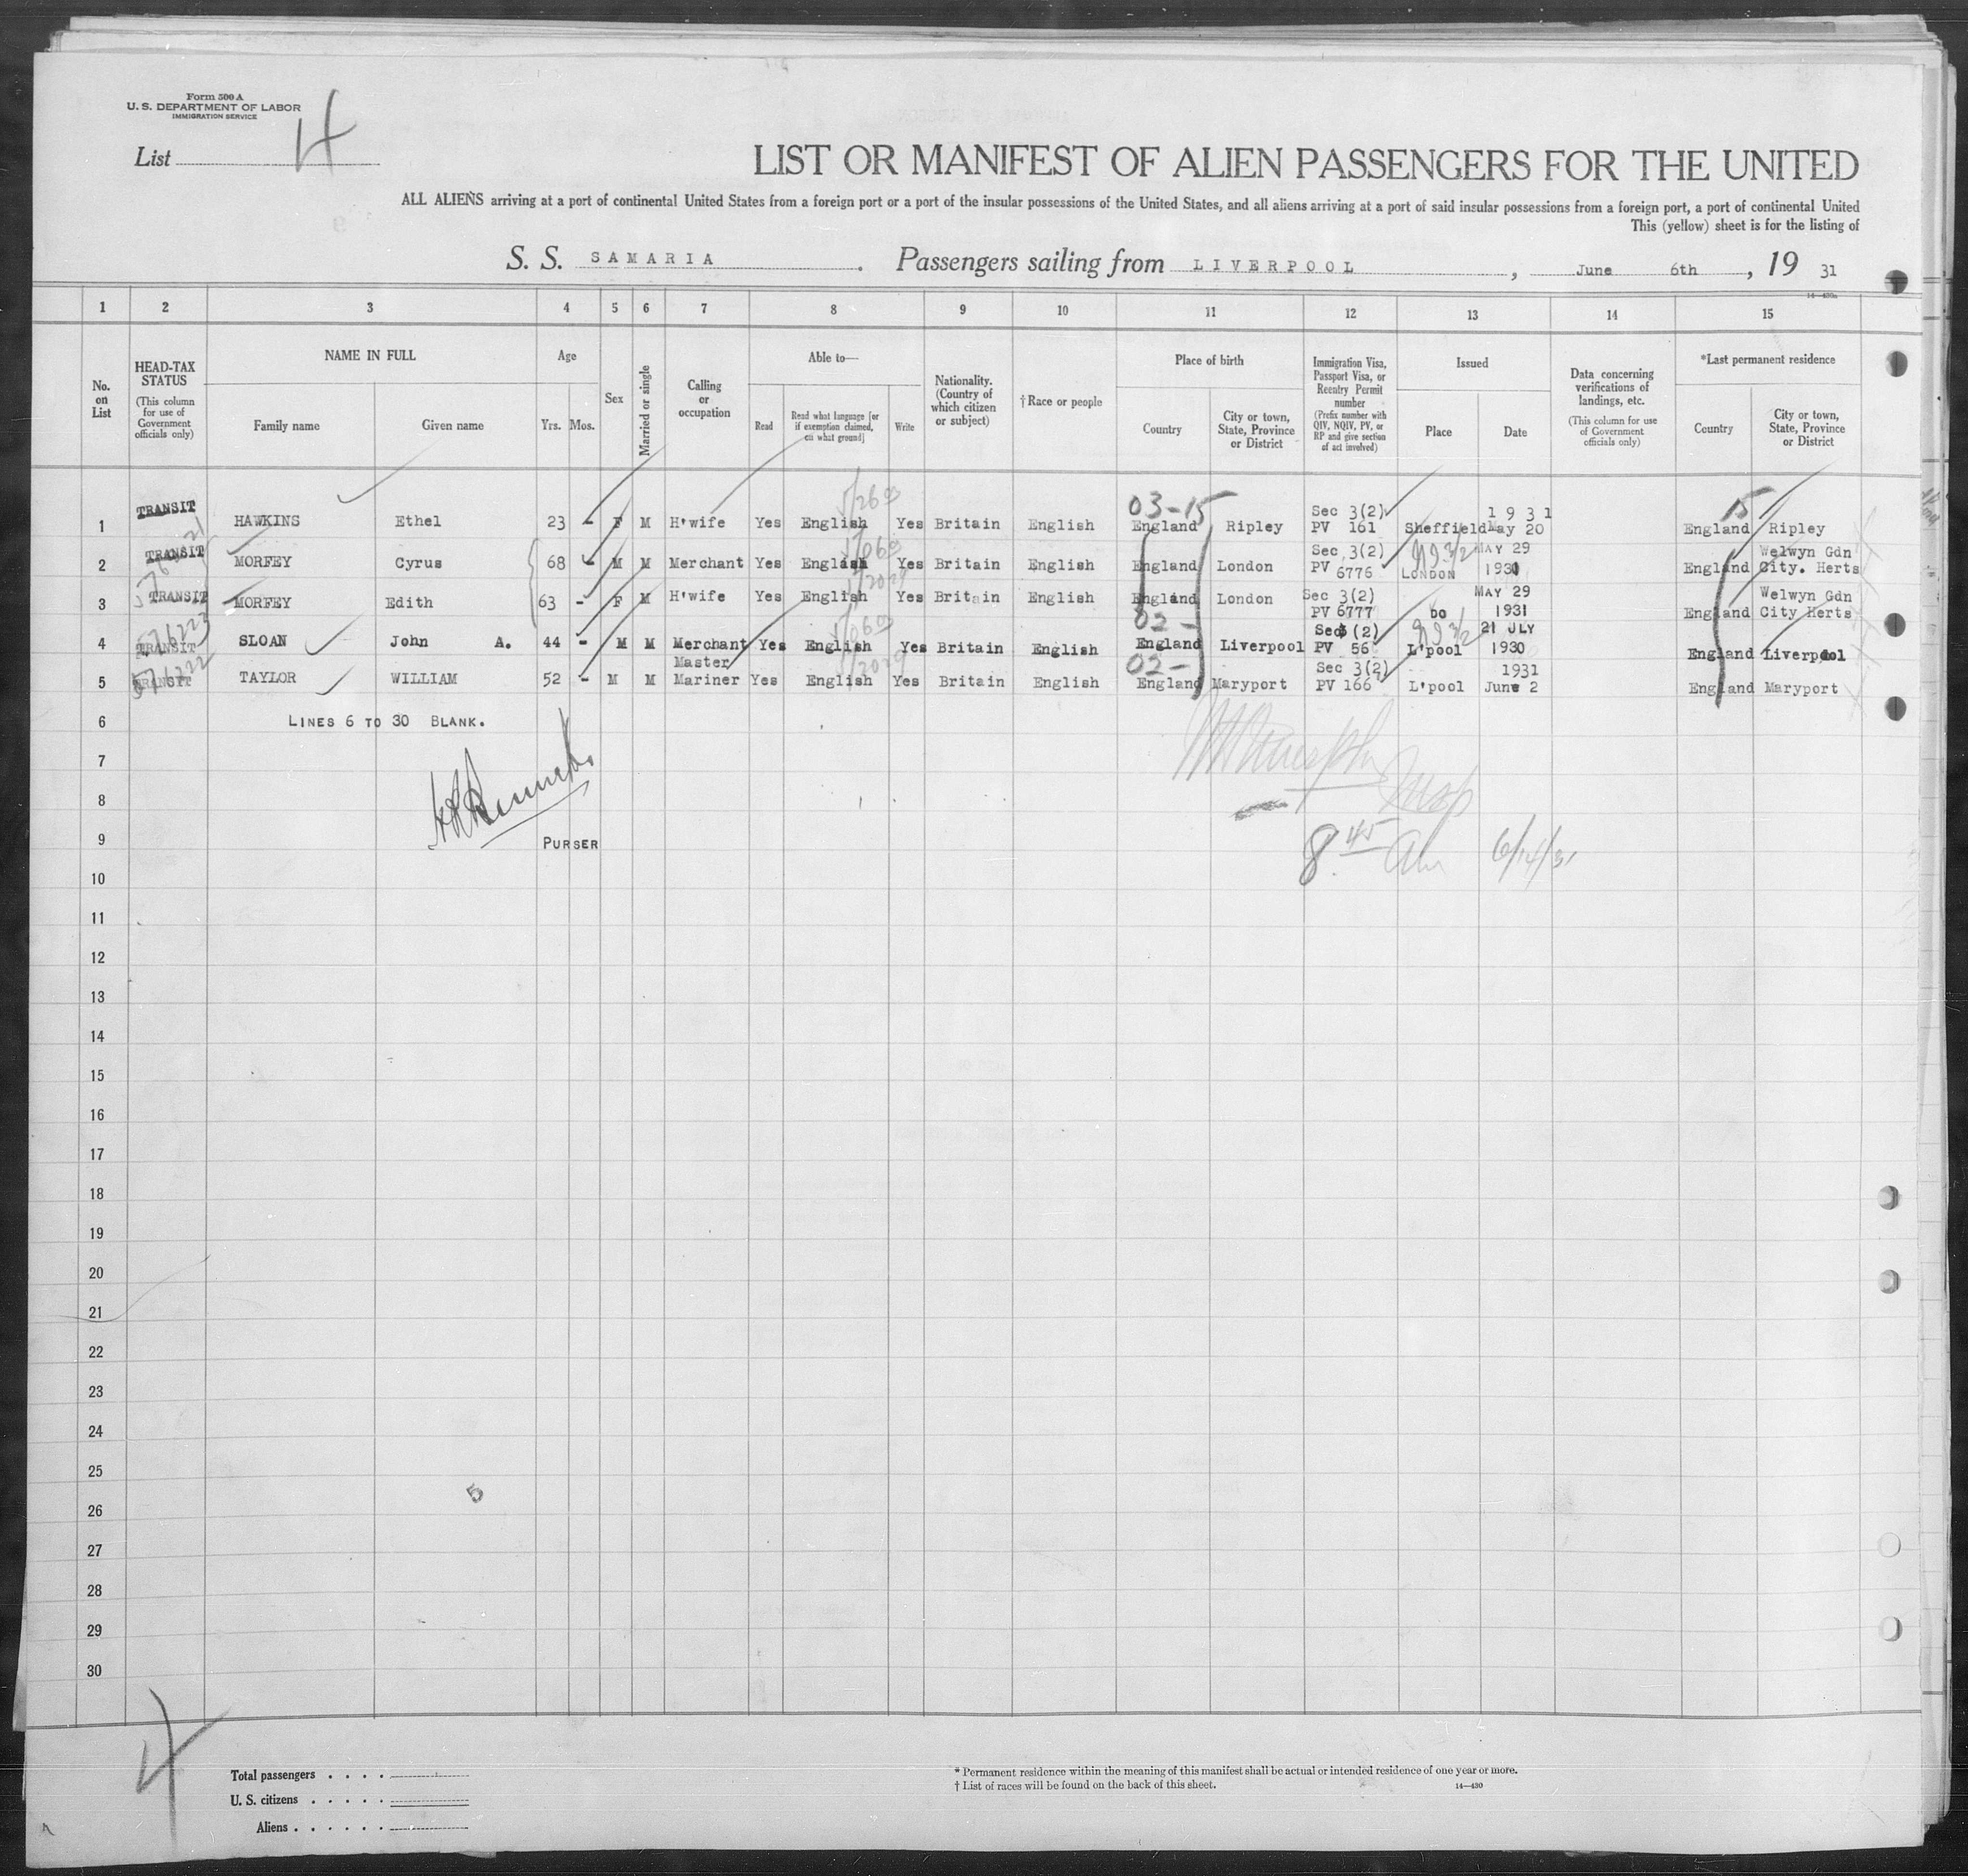 Form 500 A
U. S. DEPARTMENT OF LABOR
IMMIGRATION SERVICE
List 4
LIST OR MANIFEST OF ALIEN PASSENGERS FOR THE UNITED
ALL ALIENS arriving at a port of continental United States from a foreign port or a port of the insular possessions of the United States, and all aliens arriving at a port of said insular possessions from a foreign port, a port of continental United
This (yellow) sheet is for the listing of
S. S. SAMARIA. Passengers sailing from LIVERPOOL, June 6th, 19 31
14—430a
1 2 3 4 5 6 7 8 9 10 11 12 13 14 15
No. on List
HEAD-TAX STATUS
(This column for use of Government officials only)
NAME IN FULL
Family name Given name
Age
Yrs. Mos.
Sex
Married or single
Calling or occupation
Able to—
Read Read what language [or if exemption claimed, on what ground] Write
Nationality. (Country of which citizen or subject)
†Race or people
Place of birth
Country City or town, State, Province or District
Immigration Visa, Passport Visa, or Reentry Permit number
(Prefix number with QIV, NQIV, PV, or RP and give section of act involved)
Issued
Place Date
Data concerning verifications of landings, etc.
(This column for use of Government officials only)
*Last permanent residence
Country City or town, State, Province or District
03-15 15
1 TRANSIT HAWKINS Ethel 23 - F M H'wife Yes English Yes Britain English England Ripley Sec 3(2) PV 161 Sheffield May 20 1931 England Ripley
2 TRANSIT MORFEY Cyrus 68 - M M Merchant Yes English Yes Britain English England London Sec 3(2) PV 6776 LONDON MAY 29 1931 England Welwyn Gdn City. Herts
3 TRANSIT MORFEY Edith 63 - F M H'wife Yes English Yes Britain English England London Sec 3(2) PV 6777 DO MAY 29 1931 England Welwyn Gdn City Herts
02-
4 TRANSIT SLOAN John A. 44 - M M Merchant Yes English Yes Britain English England Liverpool Sec 3 (2) PV 56 L'pool 21 JLY 1930 England Liverpool
02-
5 TRANSIT TAYLOR WILLIAM 52 - M M Master Mariner Yes English Yes Britain English England Maryport Sec 3(2) PV 166 L'pool 1931 June 2 England Maryport
6 LINES 6 TO 30 BLANK.
7
8
9 PURSER
8 45 am 6/14/31
10
11
12
13
14
15
16
17
18
19
20
21
22
23
24
25
5
26
27
28
29
30
4
Total passengers . . . .
U. S. citizens . . . . .
Aliens . . . . . .
* Permanent residence within the meaning of this manifest shall be actual or intended residence of one year or more.
† List of races will be found on the back of this sheet. 14—430